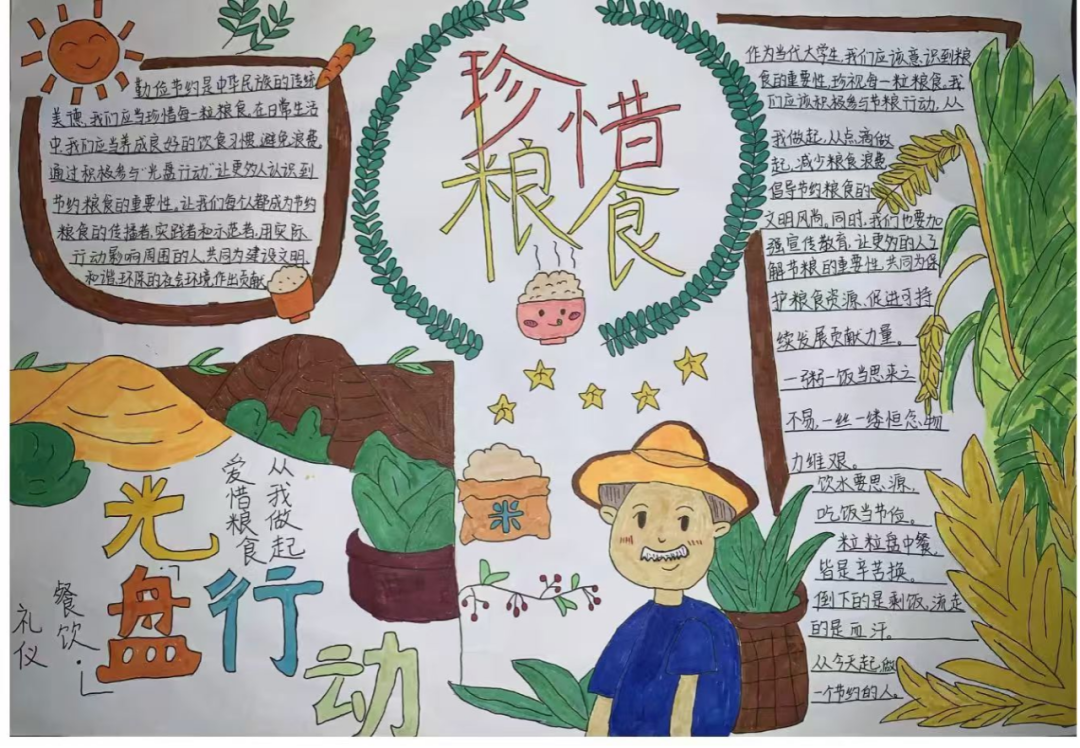 珍惜
粮食
勤俭节约是中华民族的传统
美德、我们应当珍惜每一粒粮食、在日常生活
中我们应当养成良好的饮食习惯、避免浪费、
通过积极参与"光盘行动"让更多人认识到
节约粮食的重要性。让我们每个人都成为节约
粮食的传播者、实践者和示范者、用实际
行动影响周围的人、共同为建设文明、
和谐、环保的社会环境作出贡献
作为当代大学生、我们应该意识到粮
食的重要性、珍视每一粒粮食、我
们应该积极参与节粮行动、从
我做起、从点滴做
起、减少粮食浪费、
倡导节约粮食的
文明风尚。同时、我们也要加
强宣传教育、让更多的人了
解节粮的重要性、共同为保
护粮食资源、促进可持
续发展贡献力量。
一粥一饭当思来之
不易、一丝一缕恒念物
力维艰。
饮水要思源。
吃饭当节俭。
粒粒盘中餐、
皆是辛苦换。
倒下的是剩饭、流走
的是血汗。
从今天起、做
一个节约的人。
米
从我做起
爱惜粮食
光
盘
行
动
「餐饮·」
礼仪